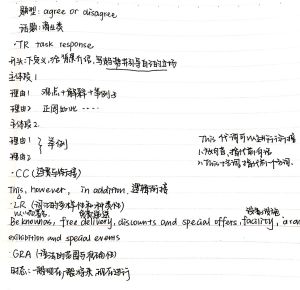 题型: agree or disagree
话题: 商业类
·TR task response
开头: 下定义, 给背景介绍, 写
主体段 1
理由1 观点+解释+举例子
理由2 正周如此 ······
主体段2.
理由1 } 举例
理由2
This 代词可以进行
1.
2. This+名词, 指代前一个名词.
·CC (连贯与衔接)
This, however, in addition, 逻辑衔接
·LR (词汇的多样性和
Be known as, free delivery, discounts and special offers, facility,
exhibition and special events
·GRA (语法的范围与准确性)
时态: 一般现在, 一般将来, 现在进行